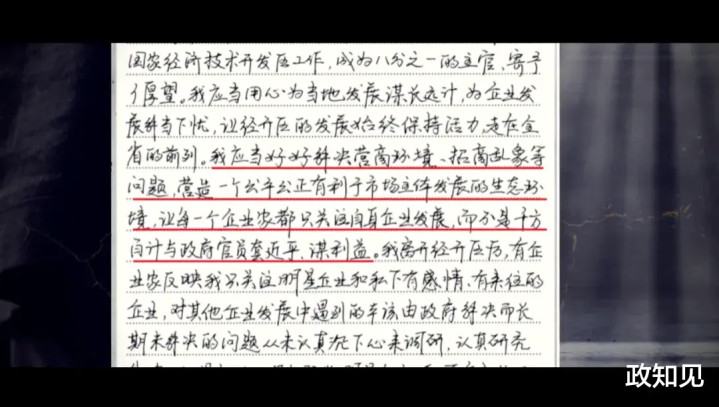 国家经济技术开发区工作，成为八分之一的主官、寄予
了厚望。我应当用心为当地发展谋长远计，为企业发
展解当下忧，让经开区的发展始终保持活力，走在全
省的前列。我应当好好解决营商环境、招商乱象等
问题，营造一个公平公正有利于市场主体发展的生态环
境，让每一个企业家都只关注自身企业发展，而不是千方
百计与政府官员套近乎、谋利益。我离开经开区后，有企
业家反映我只关注明星企业和私下有感情、有来往的
企业，对其他企业发展中遇到的本该由政府解决而长
期未解决的问题从未认真沉下心来调研，认真研究
政知见